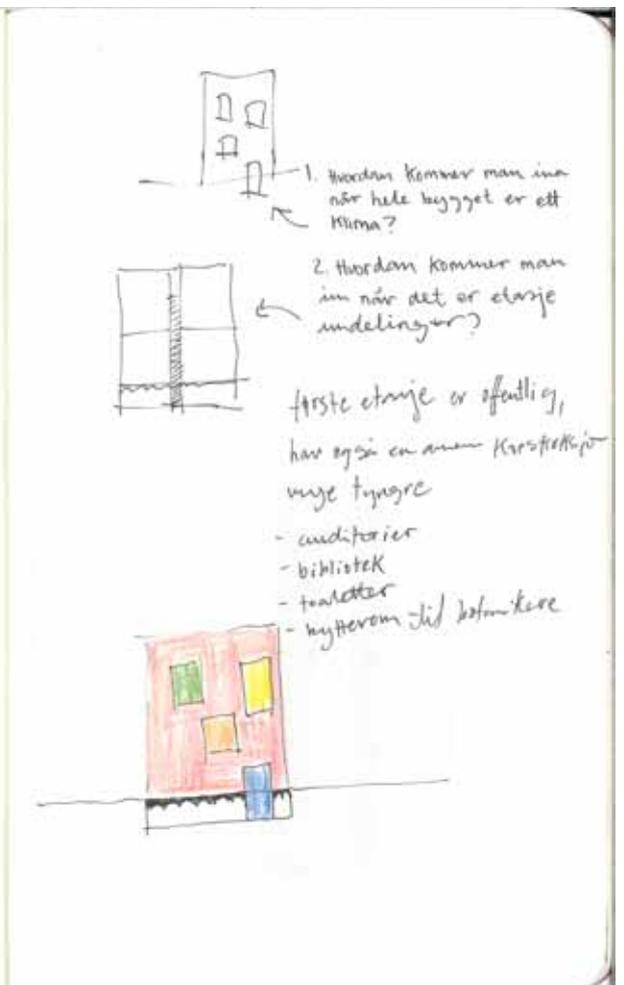 1. Hvordan kommer man inn
når hele bygget er ett
Klima?
2. Hvordan kommer man
inn når det er etasje
inndelinger?
første etasje er offentlig,
har også en annen
mye tyngre
- auditorier
- bibliotek
- toaletter
- nytterom til botanikere